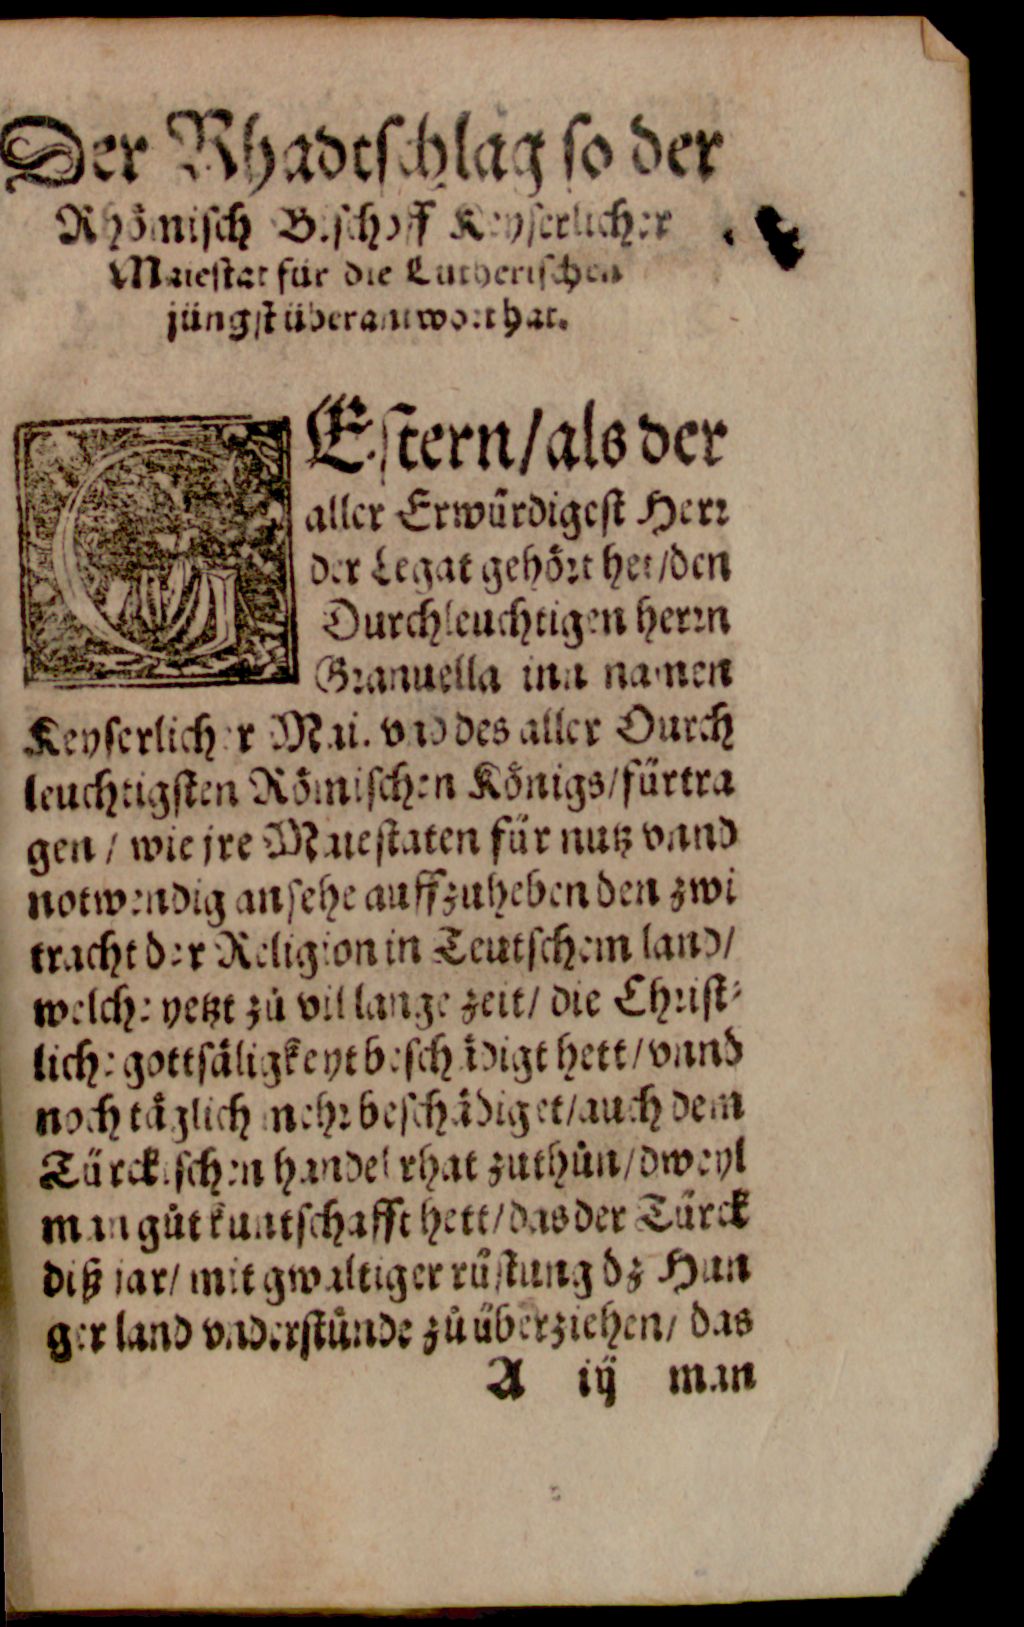 Der Rhadtschlag so der
Rhömisch Bischoff Keyserlicher
Maiestat für die Lutherischen
jüngst überantwort hat.
GEstern/als der
aller Erwürdigest Herr
der Legat gehört het/den
Durchleuchtigen herrn
Granuella inn namen
Keyserlicher Mai. vnd des aller Durch
leuchtigsten Römischen Königs/fürtra
gen/ wie jre Maiestaten für nutz vnnd
notwendig ansehe auffzuheben den zwi
tracht der Religion in Teutschem land/
welche yetzt zů vil lange zeit/ die Christ⸗
liche gottsäligkeyt beschädigt hett/vnnd
noch täglich mehr beschädiget/auch dem
Türckischen handel rhat zuthůn/dweyl
man gůt kuntschafft hett/das der Türck
diß jar/ mit gwaltiger rüstung dz Hun
ger land vnderstünde zů überziehen/ das
A iij man